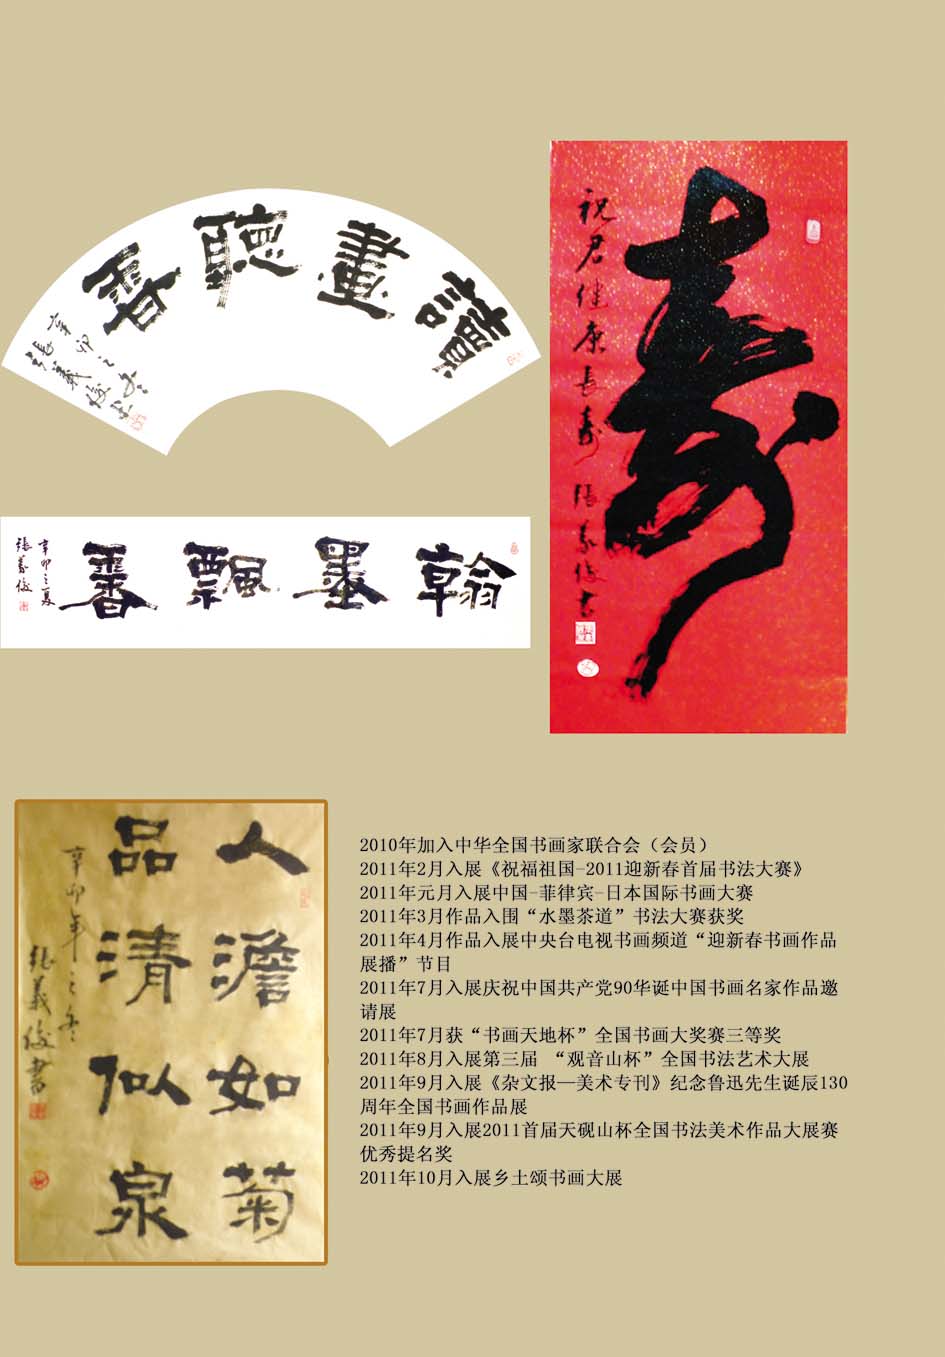 讀畫聽香
辛卯之冬
張義俊書
壽
祝君健康長壽 張義俊書
翰墨飄香
辛卯之夏
張義俊
人澹如菊
品清似泉
辛卯年之冬
張義俊書
2010年加入中华全国书画家联合会（会员）
2011年2月入展《祝福祖国-2011迎新春首届书法大赛》
2011年元月入展中国-菲律宾-日本国际书画大赛
2011年3月作品入围“水墨茶道”书法大赛获奖
2011年4月作品入展中央台电视书画频道“迎新春书画作品
展播”节目
2011年7月入展庆祝中国共产党90华诞中国书画名家作品邀
请展
2011年7月获“书画天地杯”全国书画大奖赛三等奖
2011年8月入展第三届 “观音山杯”全国书法艺术大展
2011年9月入展《杂文报—美术专刊》纪念鲁迅先生诞辰130
周年全国书画作品展
2011年9月入展2011首届天砚山杯全国书法美术作品大展赛
优秀提名奖
2011年10月入展乡土颂书画大展